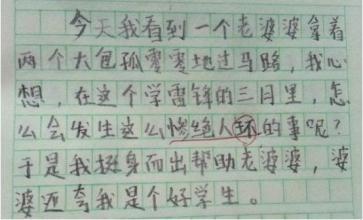 今天我看到一个老婆婆拿着
两个大包孤零零地过马路,我心
想,在这个学雷锋的三月里,怎
么会发生这么惨绝人环的事呢?
于是我挺身而出帮助老婆婆,婆
婆还夸我是个好学生。